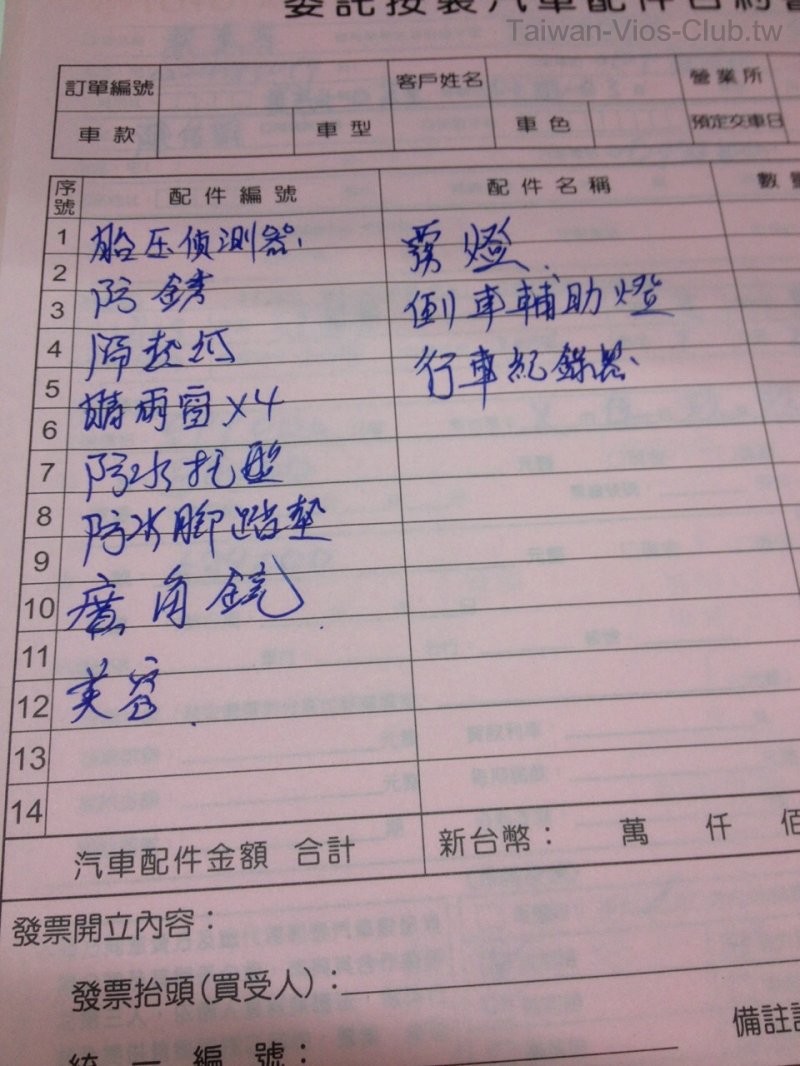 委託按裝汽車配件合約書
Taiwan-Vios-Club.tw
訂單編號 客戶姓名 營業所
車款 車型 車色 預定交車日
序號 配件編號 配件名稱 數量
1 胎压偵測器 霧燈
2
3 防銹 倒車輔助燈
4 隔熱紙 行車紀錄器
5
6 晴雨窗X4
7 防水托盤
8 防水腳踏墊
9
10 廣角鏡
11
12 美容
13
14
汽車配件金額 合計 新台幣： 萬 仟 佰
發票開立內容：
發票抬頭(買受人)：
備註
統一編號：